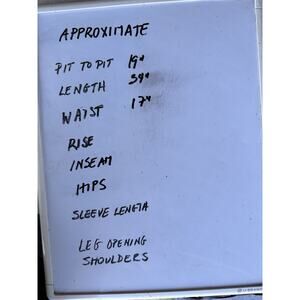 APPROXIMATE
PIT TO PIT 19"
LENGTH 39"
WAIST 17"
RISE
INSEAM
HIPS
SLEEVE LENGTH
LEG OPENING
SHOULDERS